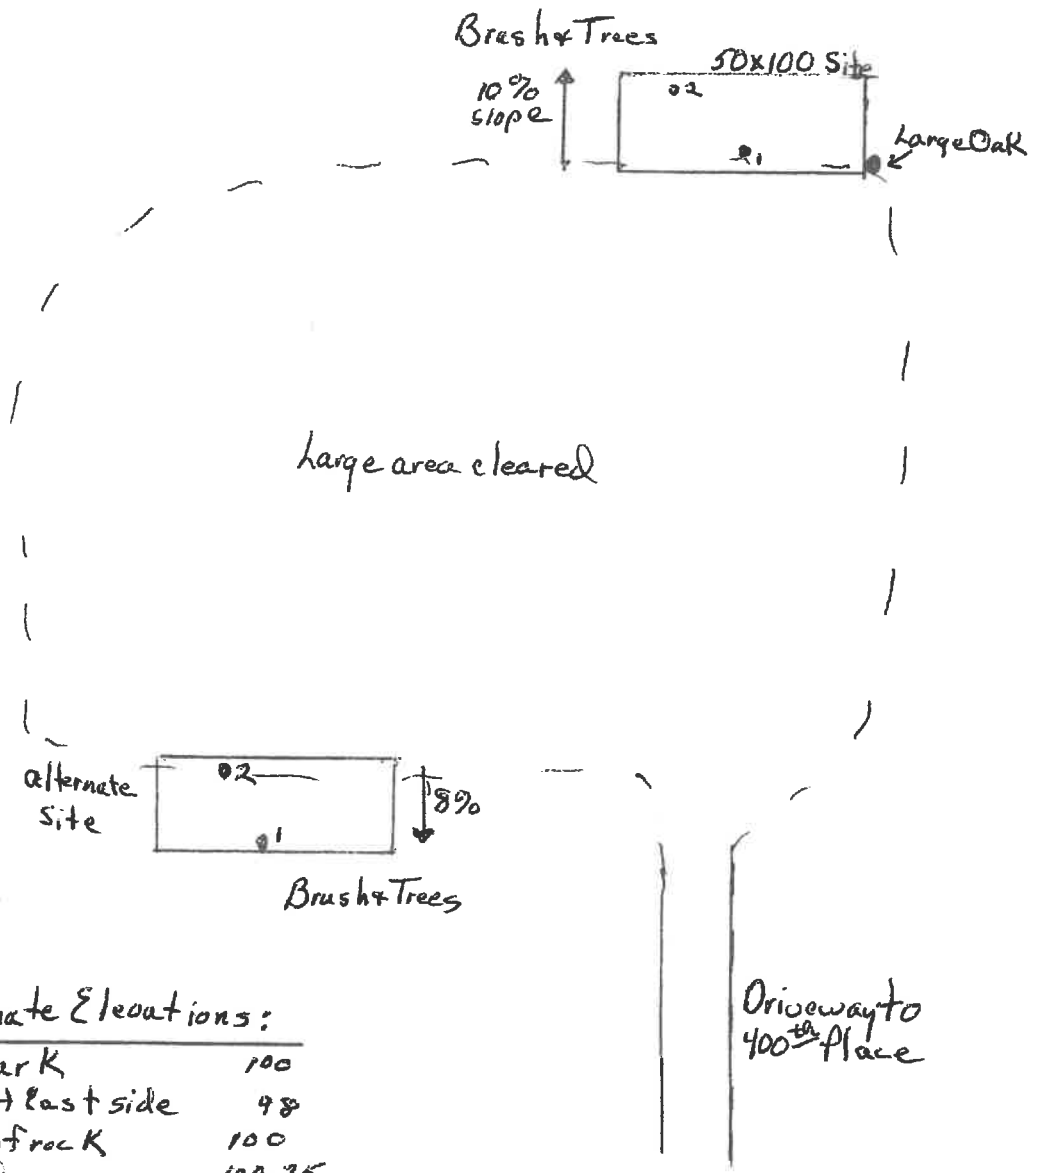 Brush & Trees
50x100 Site
10%
slope
02
1
Large Oak
Large area cleared
alternate
site
2
8%
1
Brush & Trees
Driveway to
400th Place
ate Elevations:
ark 100
t East side 98
f rock 100